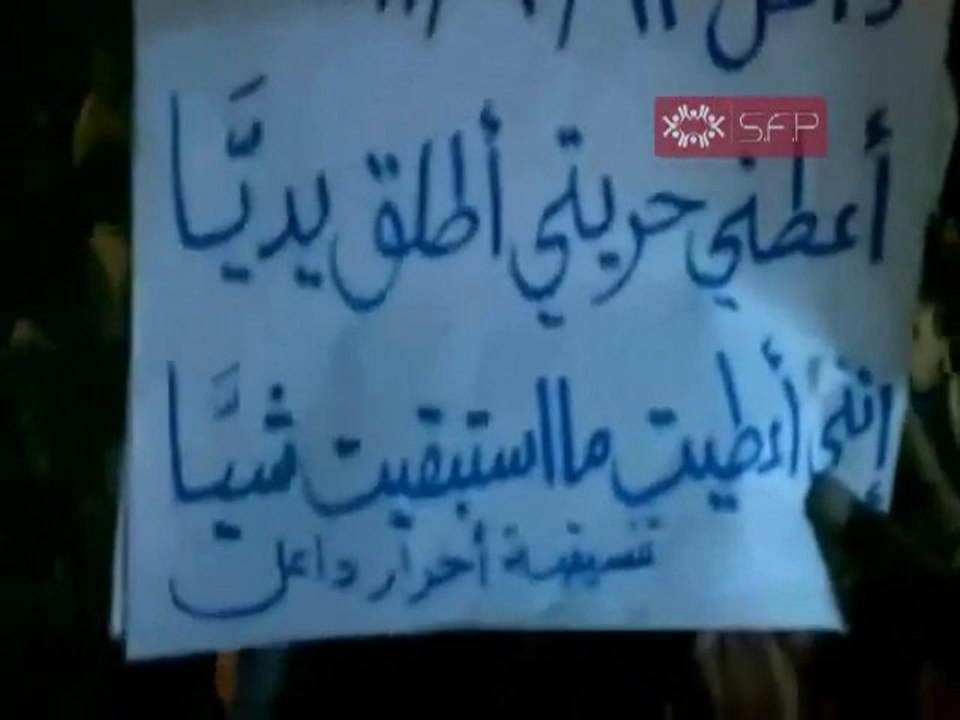 داعل
S.F.P
أعطني حريتي أطلق يديَّا
إنني أعطيت ما استبقيت شيَّا
تنسيقية أحرار داعل